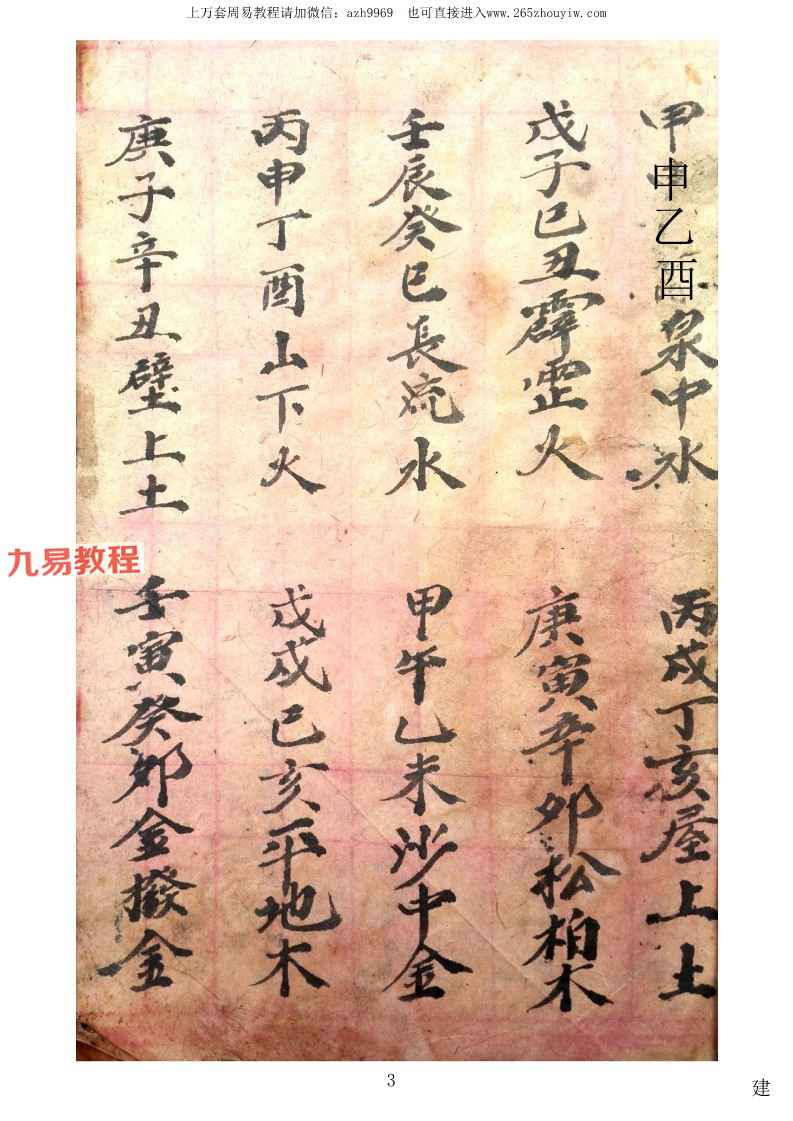 上万套周易教程请加微信：azh9969　也可直接进入www.265zhouyiw.com
甲申乙酉泉中水
丙戌丁亥屋上土
戊子己丑霹雳火
庚寅辛卯松柏木
壬辰癸巳長流水
甲午乙未沙中金
丙申丁酉山下火
戊戌己亥平地木
庚子辛丑壁上土
壬寅癸卯金撥金
九易教程
3
建